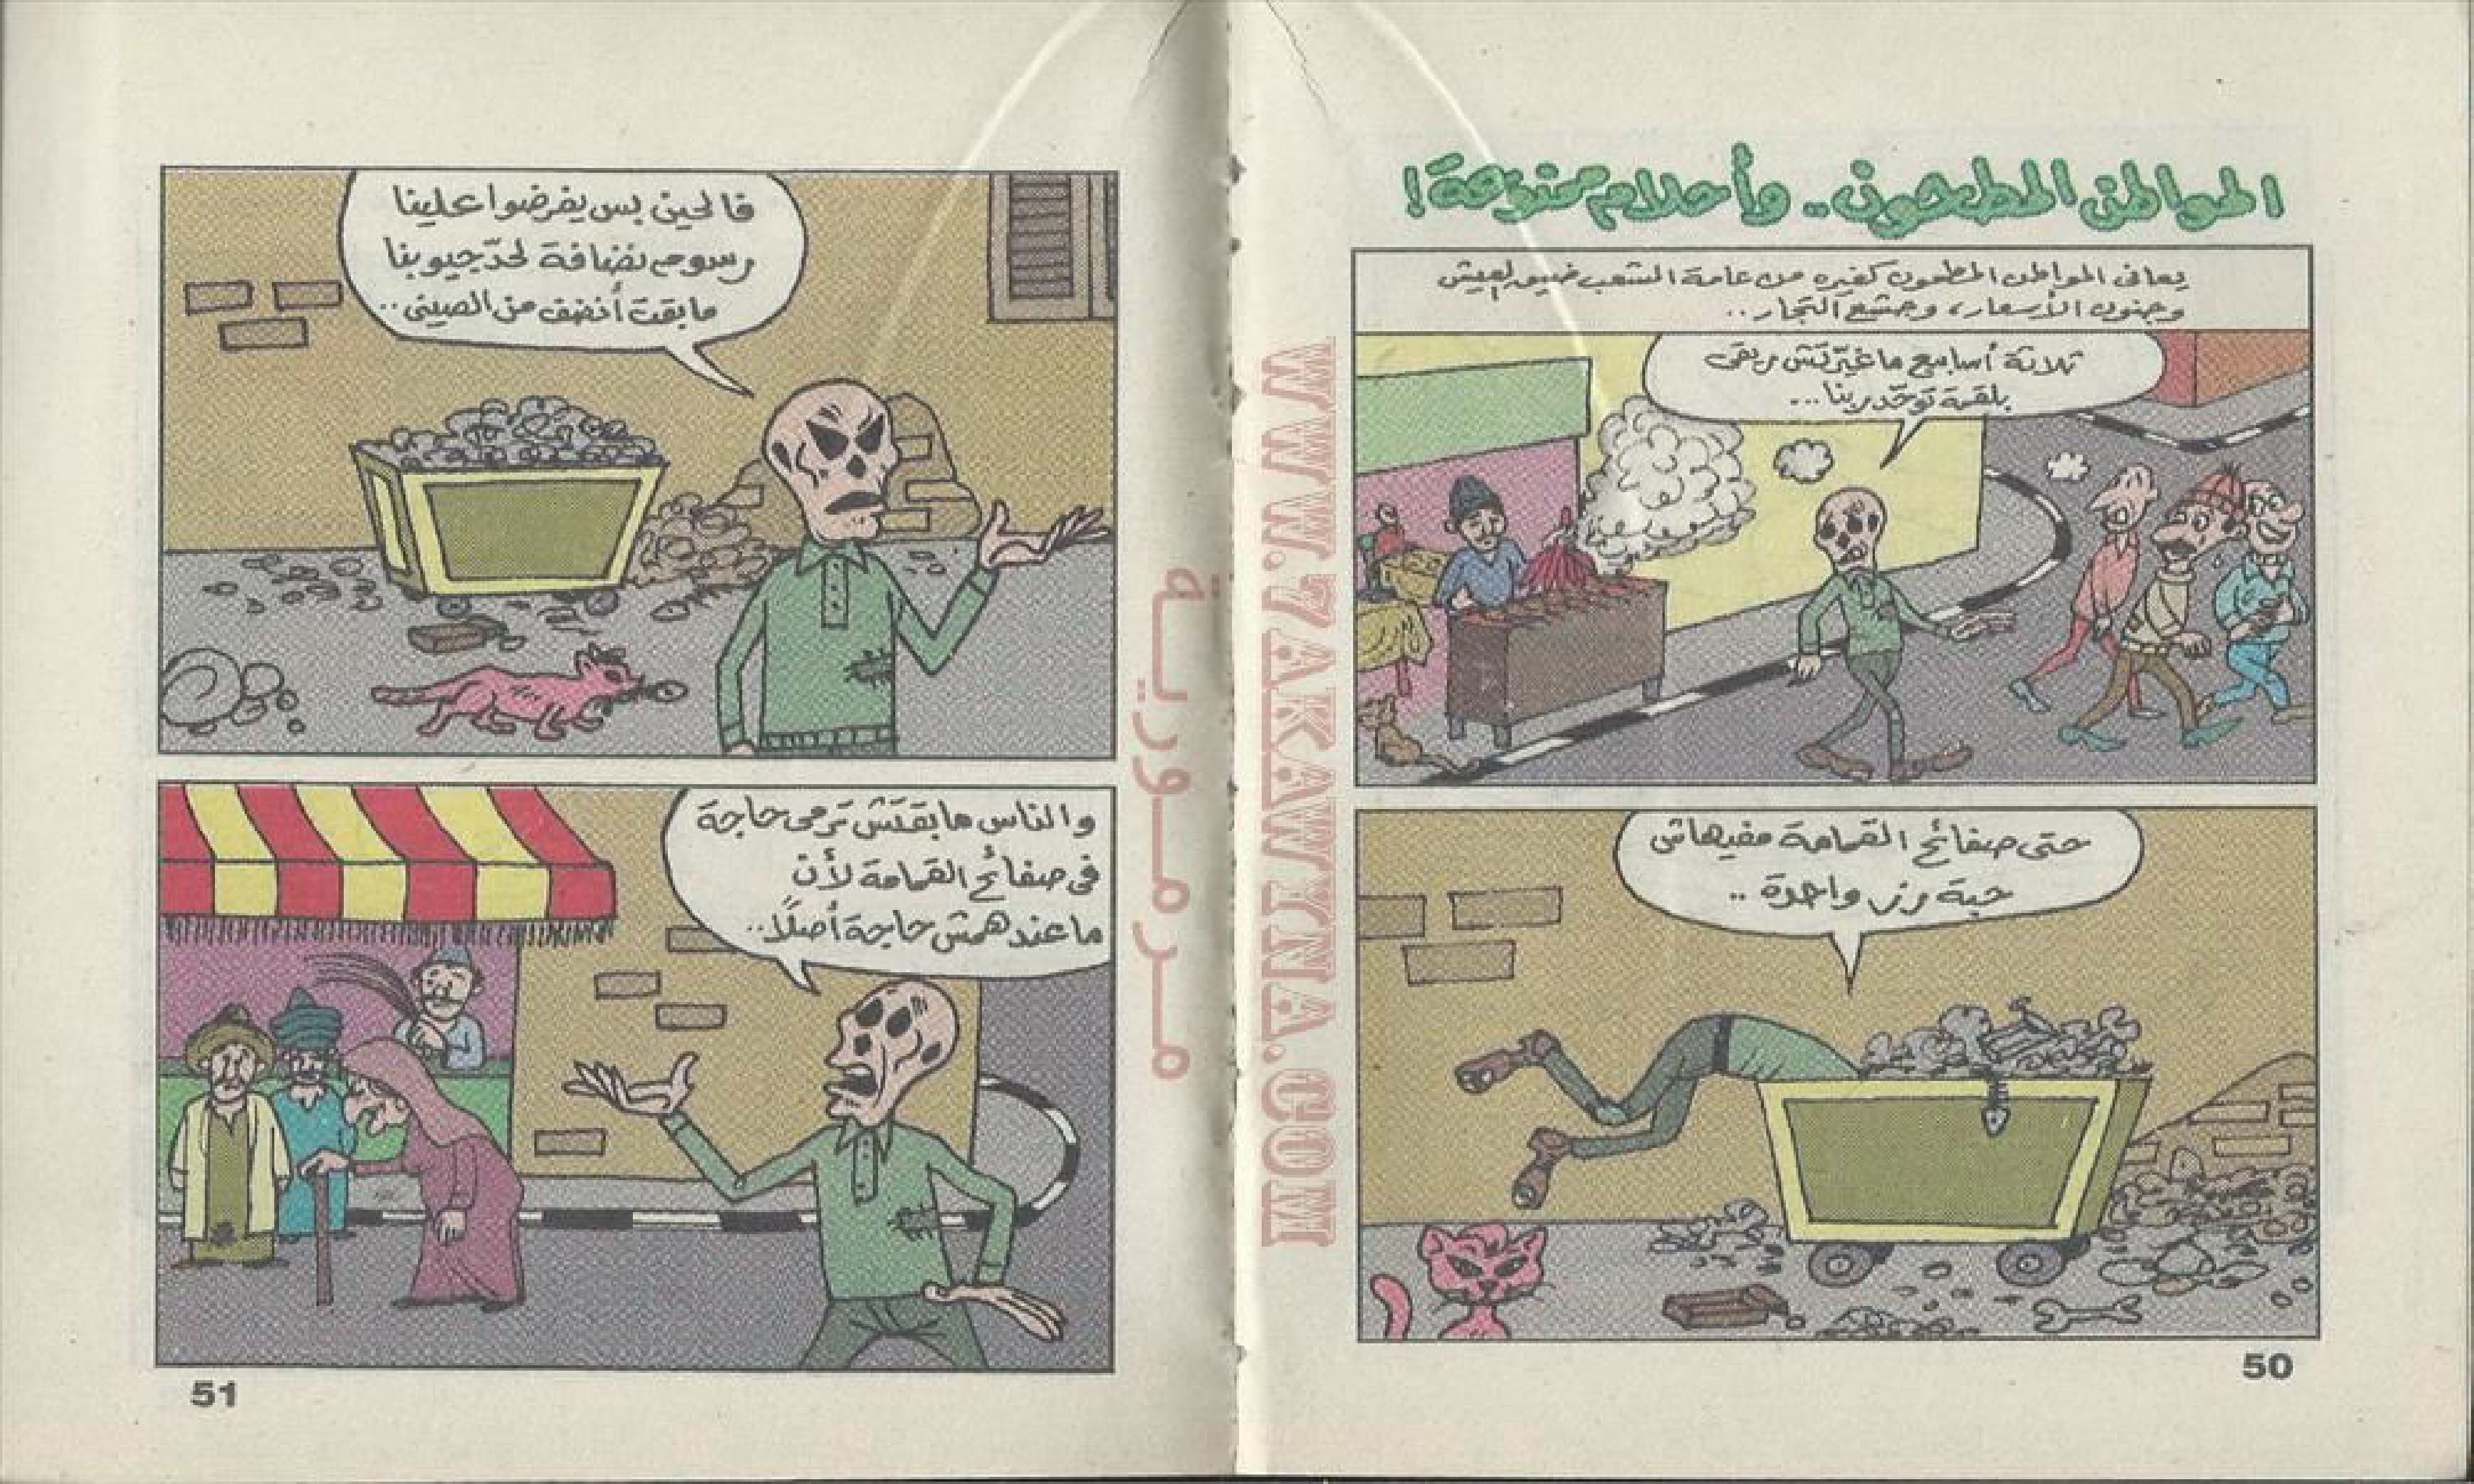 المواطن المطحون.. وأحلام ممنوعة!
يعانى المواطن المطحون كغيره من عامة الشعب ضيق العيش
وجنون الأسعار، وجشع التجار..
ثلاثة أسابيع ما غيّرتش ريقى
بلقمة توحّد ربنا...
حتى صفائح القمامة مفيهاش
حبة رز واحدة..
50
فالحين بس يفرضوا علينا
رسوم نضافة لحدّ جيوبنا
ما بقت أنضف من الصينى..
والناس ما بقتش ترمى حاجة
فى صفائح القمامة لأن
ما عندهمش حاجة أصلًا..
51
WWW.7AKAWYNA.COM
مرمورية